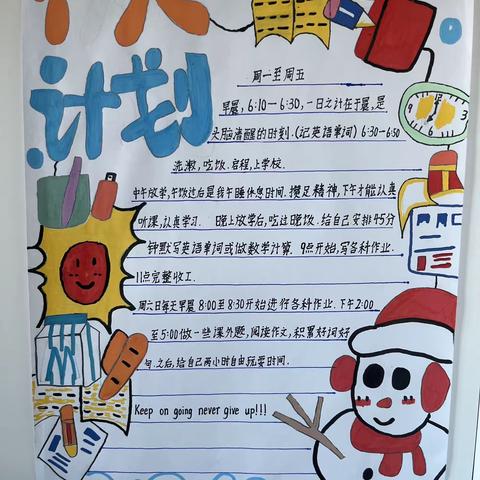 个人
计划
周一至周五
早晨,6:10—6:30,一日之计在于晨,是
头脑清醒的时刻.(记英语单词) 6:30-6:50
洗漱,吃饭.启程,上学校.
中午放学,午饭过后是我午睡休息时间.攒足精神,下午才能认真
听课,认真学习. 晚上放学后,吃过晚饭.给自己安排45分
钟默写英语单词或做数学计算. 9点开始,写各科作业.
11点完整收工.
周六日每天早晨 8:00至8:30开始进行各科作业.下午2:00
至5:00做一些课外题,阅读作文,积累好词好
句.之后,给自己两小时自由玩耍时间.
Keep on going never give up!!!